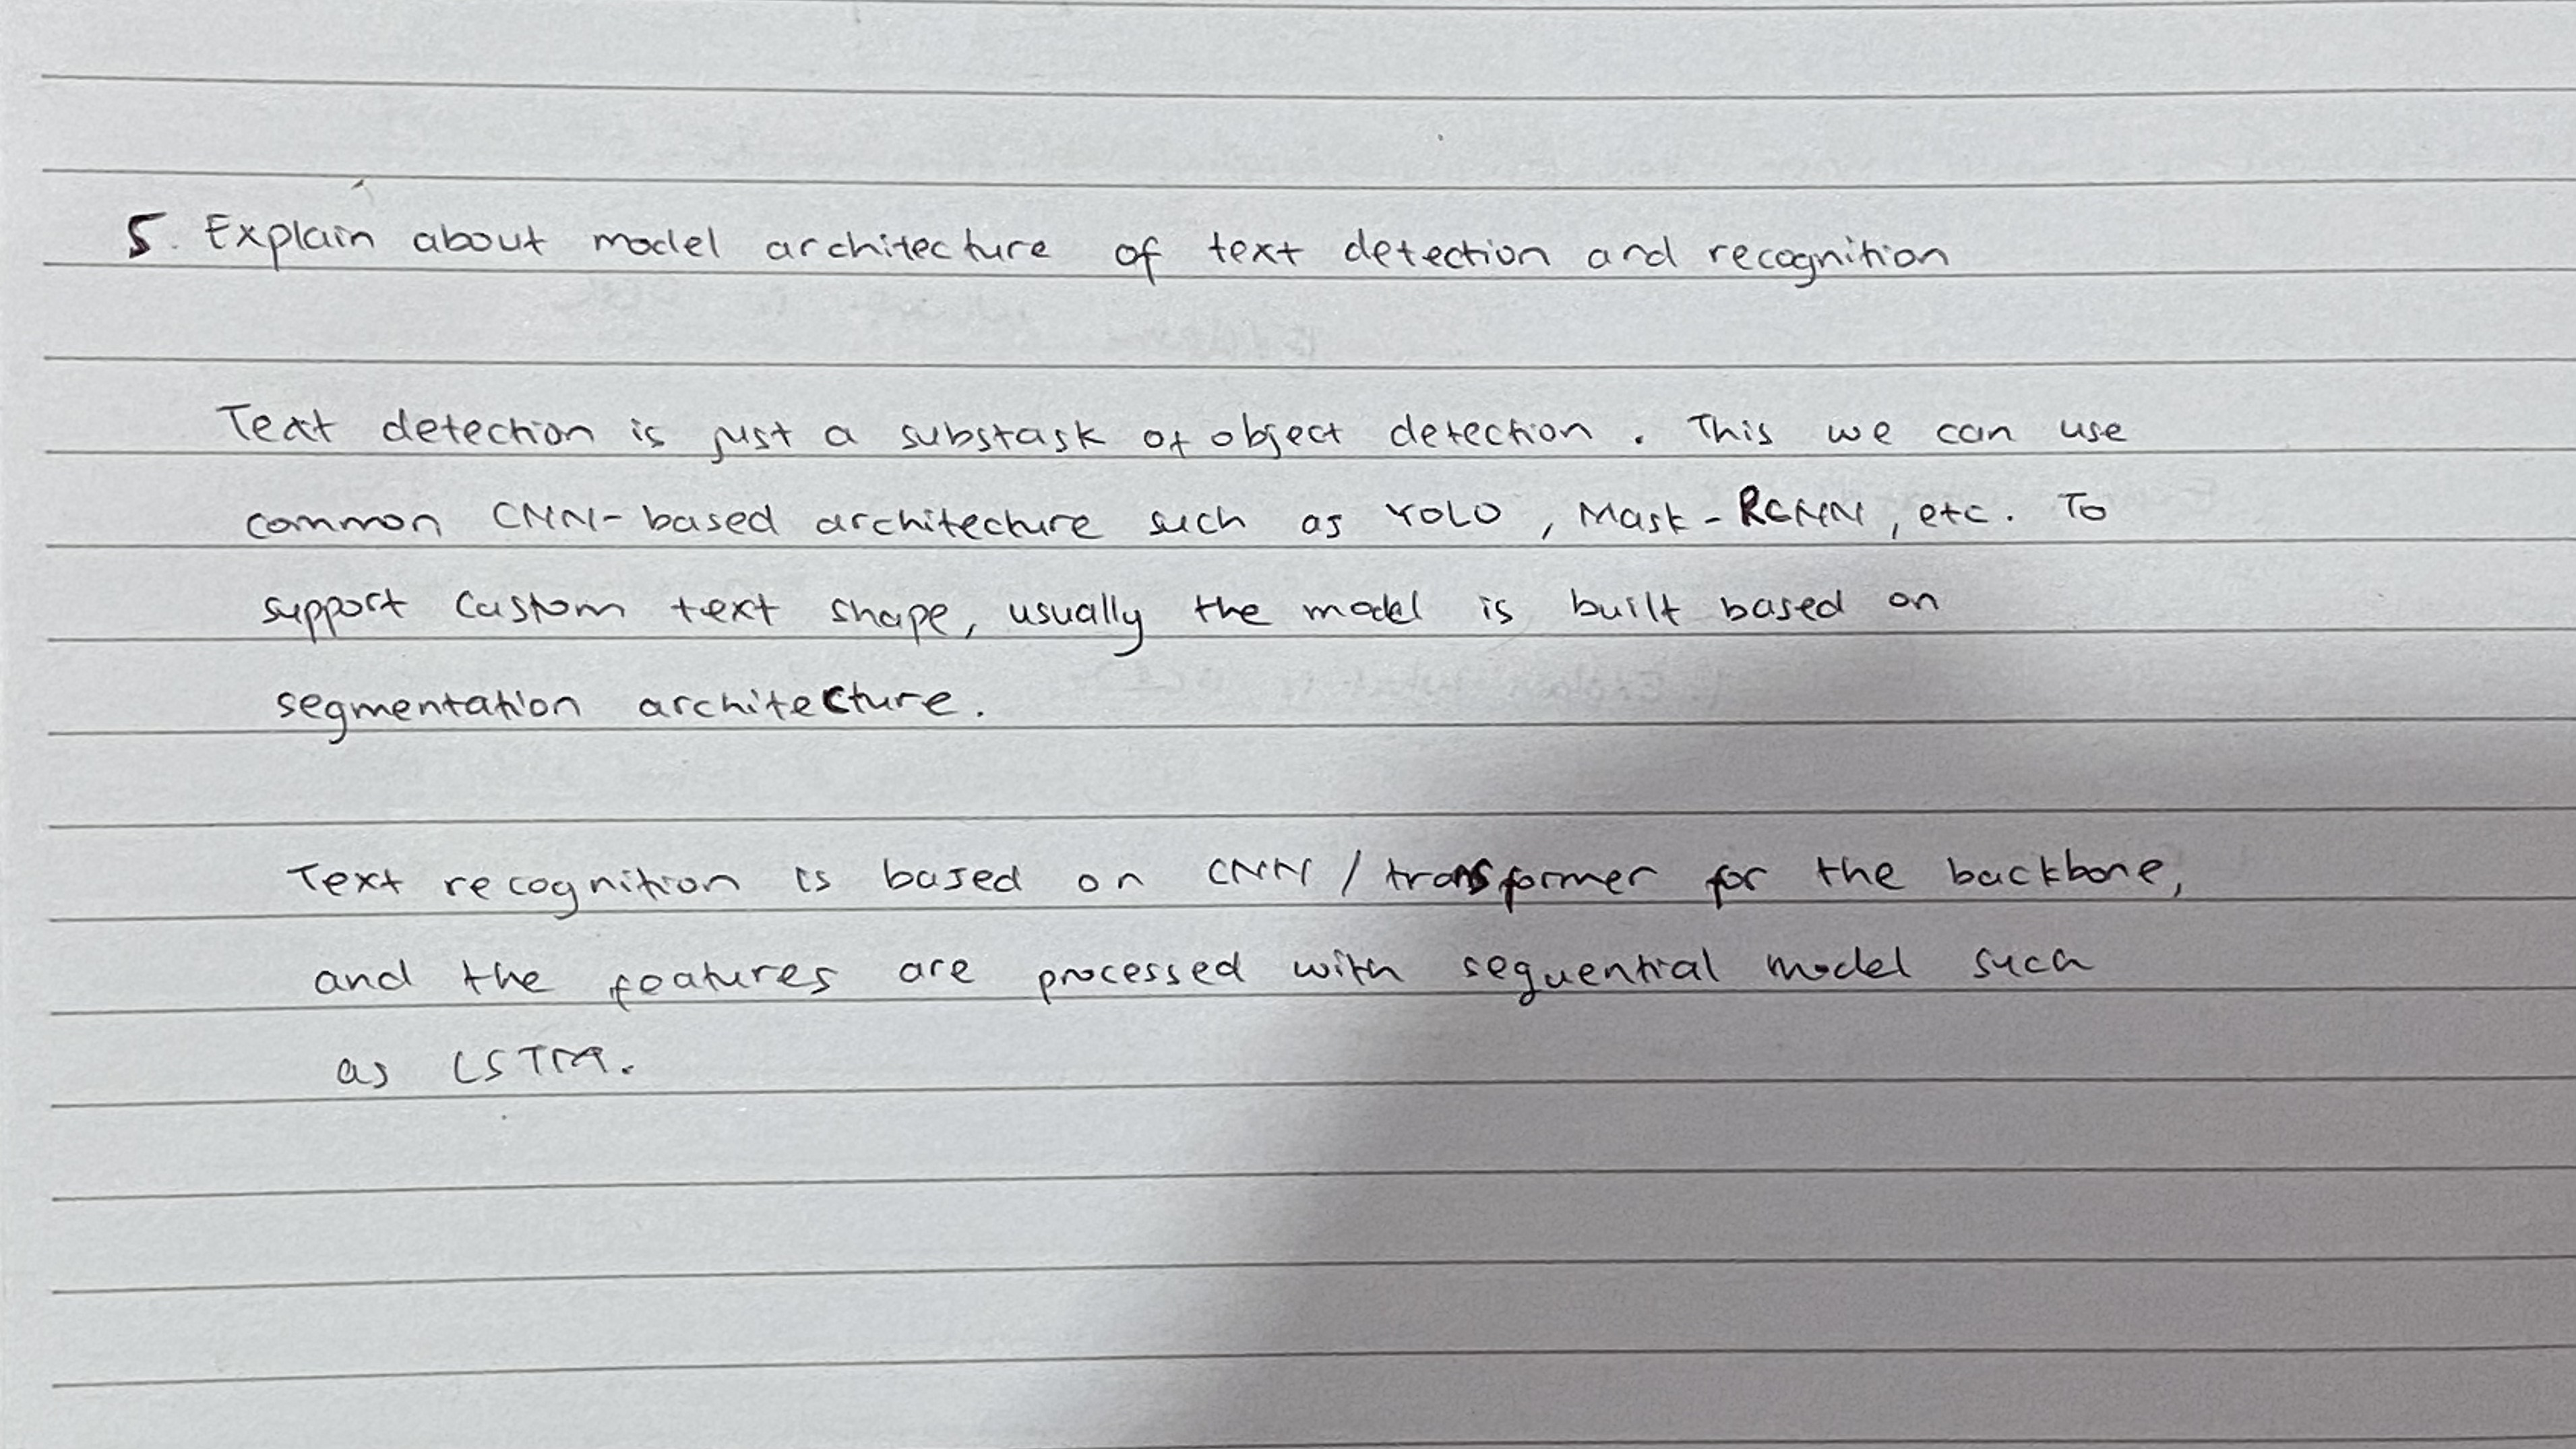 5. Explain about model architecture of text detection and recognition
Text detection is just a substask of object detection. This we can use
common CNN-based architecture such as YOLO, Mask-RCNN, etc. To
support custom text shape, usually the model is built based on
segmentation architecture.
Text recognition is based on CNN / transformer for the backbone,
and the features are processed with sequential model such
as LSTM.